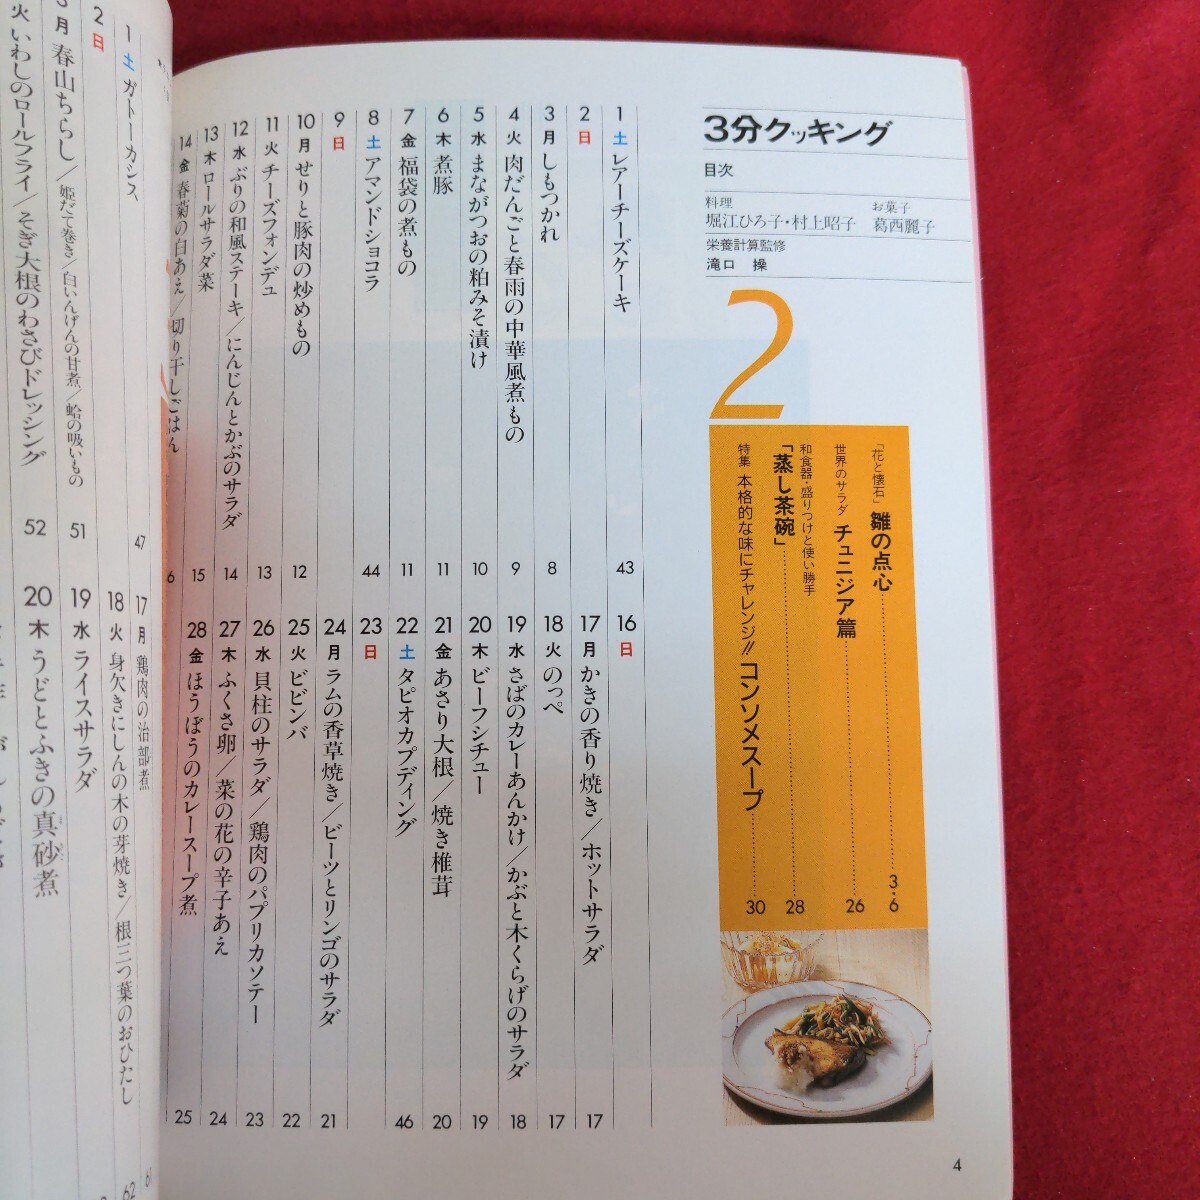 3分クッキング
目次
料理
堀江ひろ子・村上昭子
お菓子
葛西麗子
栄養計算監修
滝口 操
2
「花と懐石」雛の点心 3・6
世界のサラダ チュニジア篇 26
和食器・盛りつけと使い勝手
「蒸し茶碗」 28
特集 本格的な味にチャレンジ!! コンソメスープ 30
1 土 レアーチーズケーキ 43
2 日
3 月 しもつかれ 8
4 火 肉だんごと春雨の中華風煮もの 9
5 水 まながつおの粕みそ漬け 10
6 木 煮豚 11
7 金 福袋の煮もの 11
8 土 アマンドショコラ 44
9 日
10 月 せりと豚肉の炒めもの 12
11 火 チーズフォンデュ 13
12 水 ぶりの和風ステーキ/にんじんとかぶのサラダ 14
13 木 ロールサラダ菜 15
14 金 春菊の白あえ/切り干しごはん
16 日
17 月 かきの香り焼き/ホットサラダ 17
18 火 のっぺ 17
19 水 さばのカレーあんかけ/かぶと木くらげのサラダ 18
20 木 ビーフシチュー 19
21 金 あさり大根/焼き椎茸 20
22 土 タピオカプディング 46
23 日
24 月 ラムの香草焼き/ビーツとリンゴのサラダ 21
25 火 ビビンバ 22
26 水 貝柱のサラダ/鶏肉のパプリカソテー 23
27 木 ふくさ卵/菜の花の辛子あえ 24
28 金 ほうぼうのカレースープ煮 25
4
1 土 ガトーカシス 47
2 日
3 月 春山ちらし/姫だて巻き/白いんげんの甘煮/蛤の吸いもの 51
火 いわしのロールフライ/そぎ大根のわさびドレッシング 52
17 月 鶏肉の治部煮 61
18 火 身欠きにしんの木の芽焼き/根三つ葉のおひたし 62
19 水 ライスサラダ
20 木 うどとふきの真砂煮